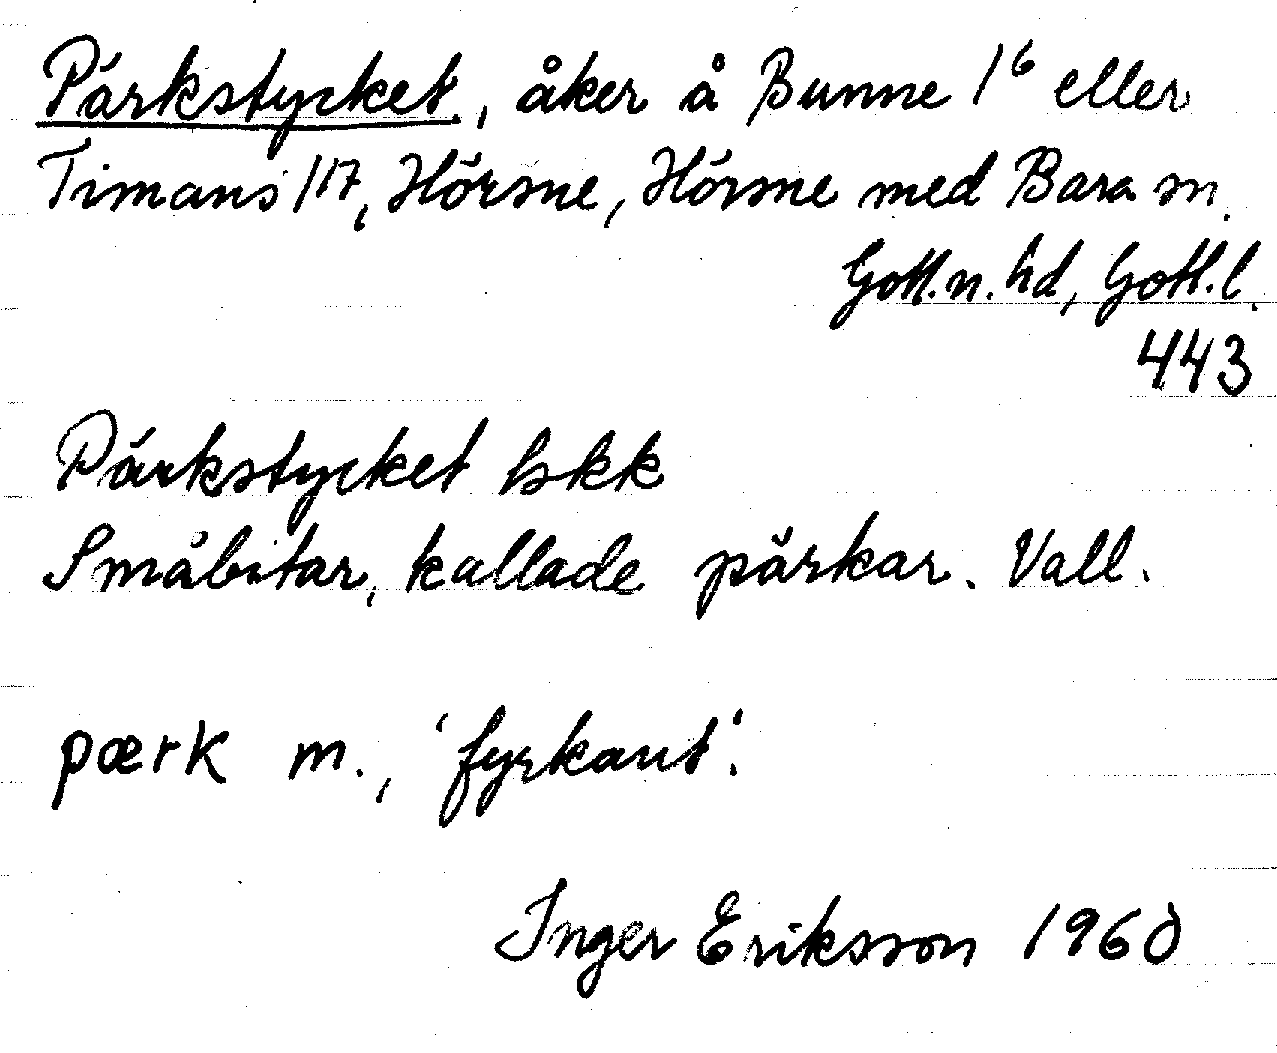 Pärkstycket, åker å Bunne 1⁶ eller
Timans 1¹⁷, Hörsne, Hörsne med Bara sn.
Gotl.n. hd, Gotl.l.
443
Pärkstycket bkk
Småbitar, kallade pärkar. Vall.
pærk m., 'fyrkant'.
Inger Eriksson 1960